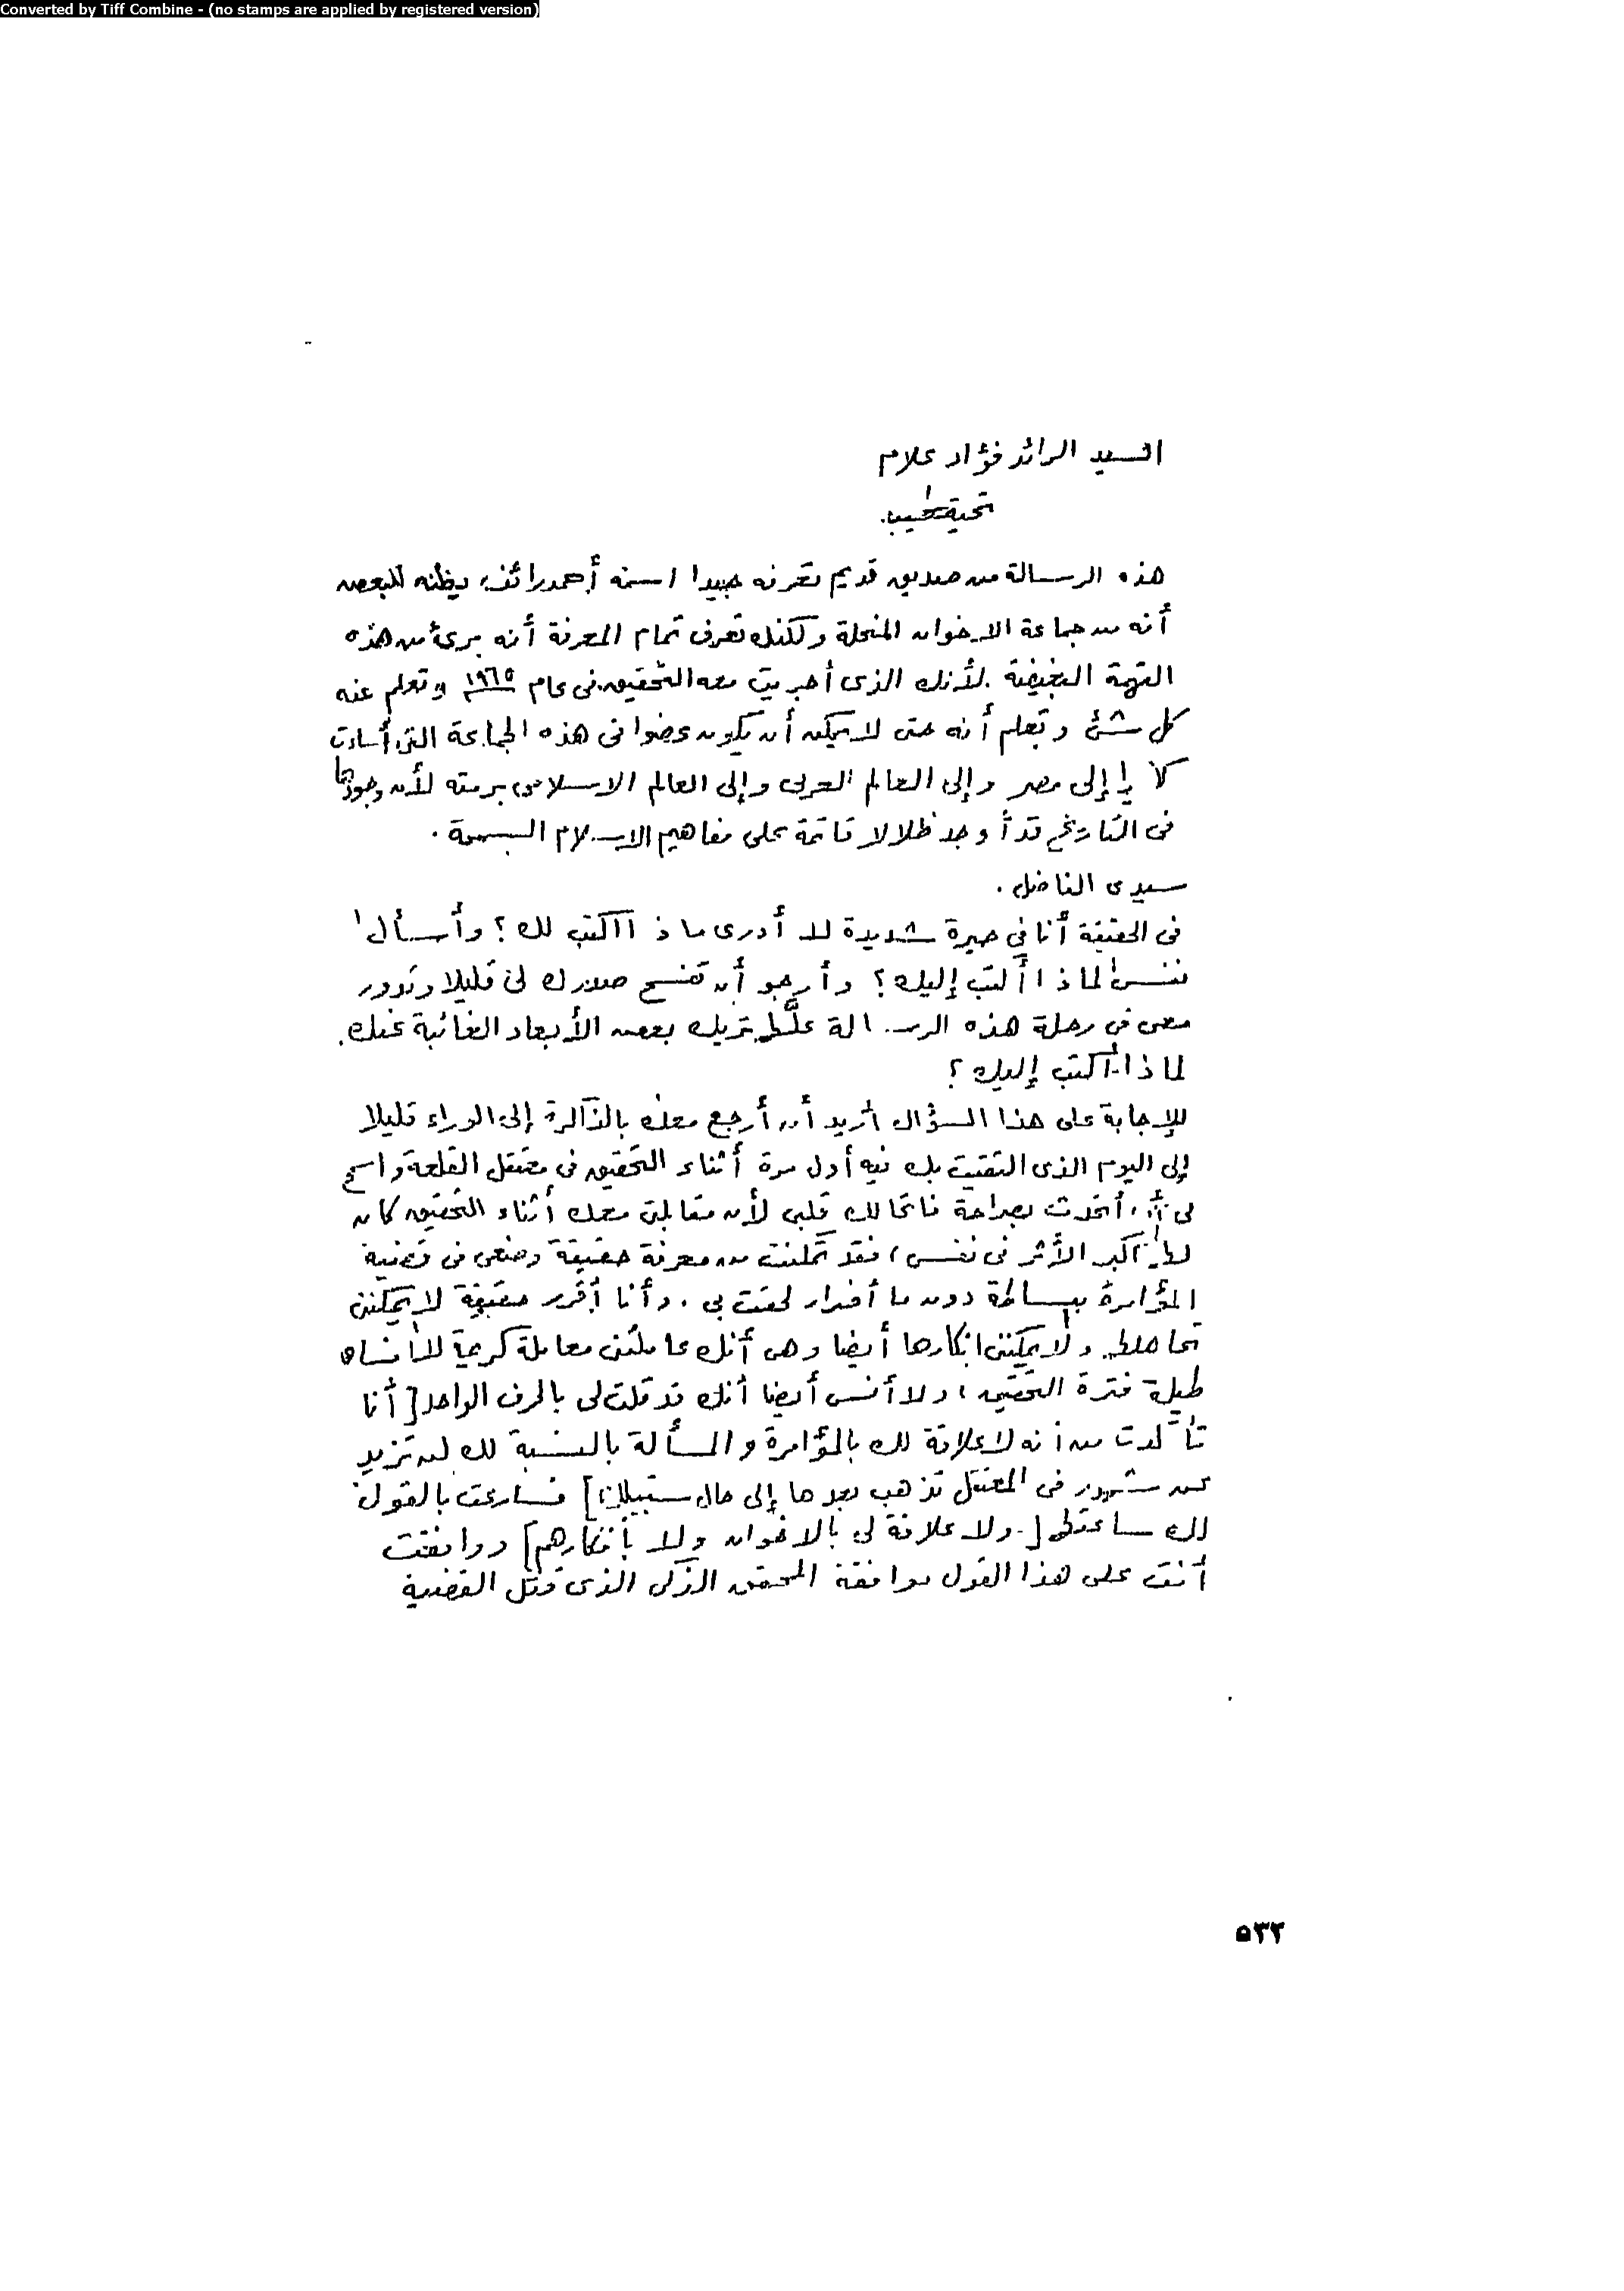 Converted by Tiff Combine - (no stamps are applied by registered version)
السيد الرائد فؤاد علام
تحية طيبة.
هذه الرسالة من صديق قديم تعرفه جيدا اسمه أحمد رائف، يظنه البعض
أنه من جماعة الاخوان المنحلة ولكنك تعرف تمام المعرفة أنه برئ من هذه
التهمة البغيضة . لأنك الذى أجريت معه التحقيق فى عام ١٩٦٥ وتعلم عنه
كل شئ وتعلم أنه حتى لا يمكن أن يكون عضوا فى هذه الجماعة التى أساءت
كثيرا إلى مصر وإلى العالم العربى وإلى العالم الاسلامى برمته لأن وجودها
فى التاريخ قد أوجد ظلالا قاتمة على مفاهيم الاسلام السمحة .
سيدى الفاضل .
فى الحقيقة أنا في حيرة شديدة لا أدرى ماذا أكتب لك ؟ وأسأل
نفسى لماذا أكتب إليك ؟ وأرجو أن تفسح صدرك لى قليلا وتدور
معى فى رحلة هذه الرسالة علها تريك بعض الأبعاد الغائبة عنك.
لماذا أكتب إليك ؟
للإجابة على هذا السؤال أريد أن أرجع معك بالذاكرة إلى الوراء قليلا
إلى اليوم الذى التقيت بك فيه أول مرة أثناء التحقيق فى معتقل القلعة واسمح
لى أن أتحدث بصراحة فاتحا لك قلبى لأن مقابلتى معك أثناء التحقيق كان
لها أكبر الأثر فى نفسى ، فقد تمكنت من معرفة حقيقة وضعى فى قضية
المؤامرة ببساطة دون ما أضرار لحقت بي . وأنا أقرر حقيقة لا يمكننى
تجاهلها ولا يمكننى انكارها أيضا وهى أنك عاملتنى معاملة كريمة للانسان
طيلة فترة التحقيق ، ولا أنسى أيضا أنك قد قلت لى بالحرف الواحد [ أنا
تأكدت من أنه لا علاقة لك بالمؤامرة والمسألة بالنسبة لك لن تزيد
عن شهور فى المعتقل تذهب بعدها إلى حال سبيلك ] فسارعت بالقول
لك ساعتها [ - ولا علاقة لى بالاخوان ولا بأفكارهم ] ووافقت
أنت على هذا القول موافقة المحقق الذكى الذى قتل القضية
٥٣٢